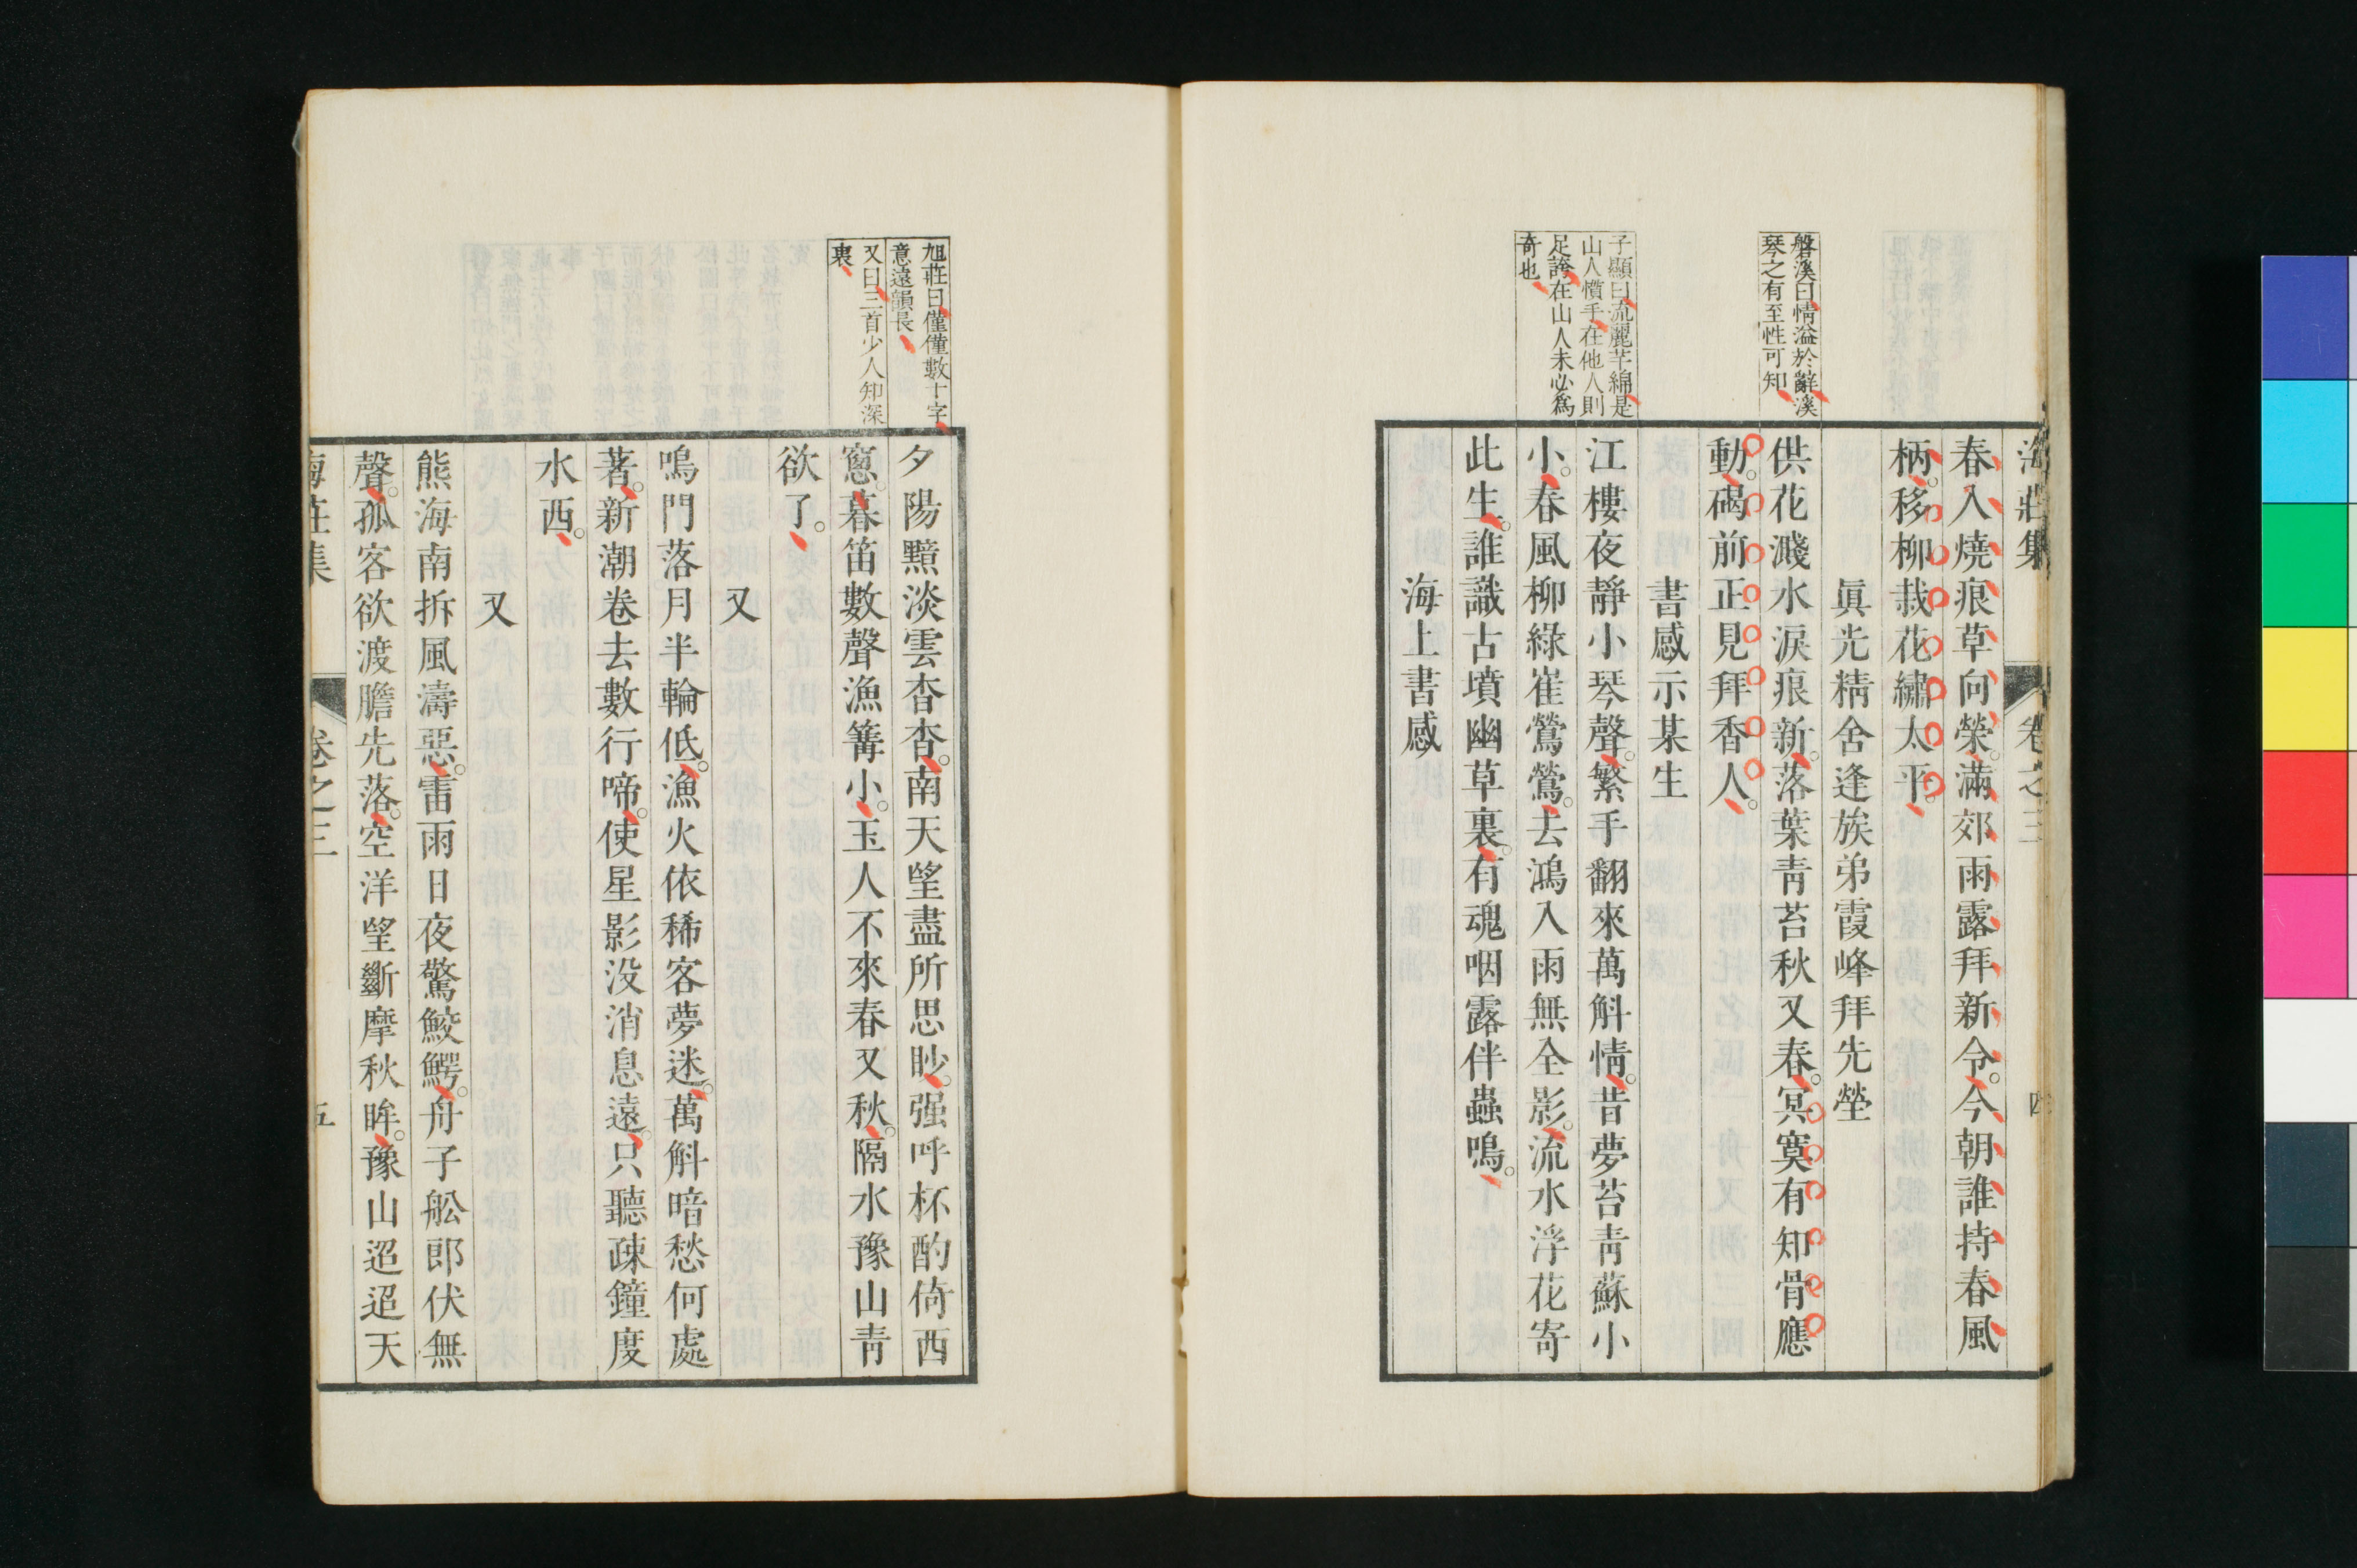 海莊集 卷之三 四
春入燒痕草向榮。滿郊雨露拜新令。今朝誰持春風
柄。移柳栽花繡太平。
眞光精舍逢族弟霞峰拜先塋
磐溪曰情溢於辭溪
琴之有至性可知
供花濺水淚痕新。落葉靑苔秋又春。冥寞有知骨應
動。碣前正見拜香人。
書感示某生
子顯曰流麗芊綿是
山人慣手在他人則
足誇在山人未必爲
奇也
江樓夜靜小琴聲。繁手翻來萬斛情。昔夢苔靑蘇小
小。春風柳綠崔鶯鶯。去鴻入雨無全影。流水浮花寄
此生。誰識古墳幽草裏。有魂咽露伴蟲鳴。
海上書感
旭莊曰僅僅數十字
意遠韻長
又曰三首少人知深
裏
夕陽黯淡雲杳杳。南天望盡所思眇。强呼杯酌倚西
窻。暮笛數聲漁篝小。玉人不來春又秋。隔水豫山靑
欲了。
又
鳴門落月半輪低。漁火依稀客夢迷。萬斛暗愁何處
著。新潮卷去數行啼。使星影没消息遠。只聽疎鐘度
水西。
又
熊海南拆風濤惡。雷雨日夜驚鮫鰐。舟子舩郎伏無
聲。孤客欲渡膽先落。空洋望斷摩秋眸。豫山迢迢天
海莊集 卷之三 五